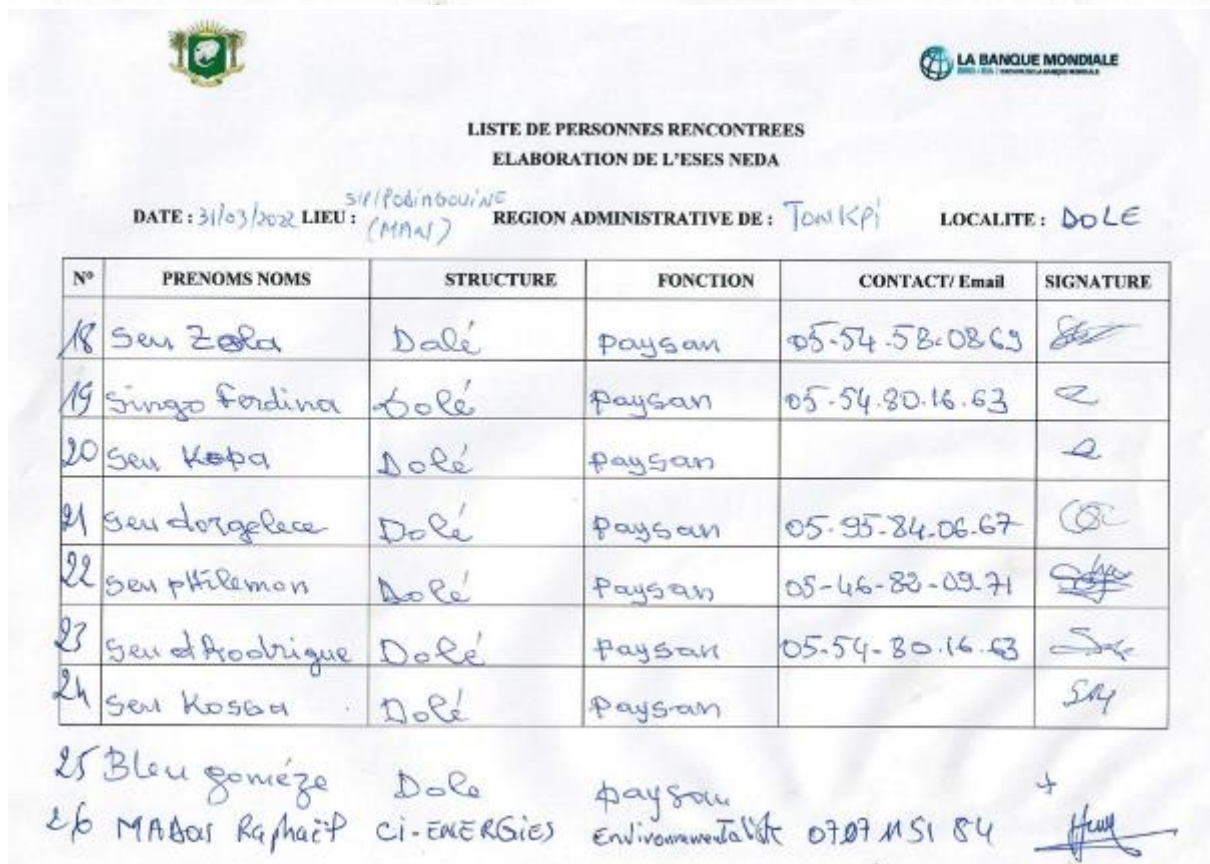 LA BANQUE MONDIALE
LISTE DE PERSONNES RENCONTREES
ELABORATION DE L'ESES NEDA
DATE : 31/03/2022 LIEU : (MAN) REGION ADMINISTRATIVE DE : TONKPI LOCALITE : DOLE
N° PRENOMS NOMS STRUCTURE FONCTION CONTACT/ Email SIGNATURE
18 Seu Zola Dolé paysan 05-54-58-08 69
19 Singo Ferdina Dolé paysan 05-54.80.16.63
20 Seu Kopa Dolé paysan
21 Seu dorgelece Dolé paysan 05-95-84-06-67
22 Seu pHilemon Dolé paysan 05-46-83-09-71
23 Seu Rodrigue Dolé paysan 05-54-80.16.63
24 Seu Dolé paysan
25 Bleu goméze Dole paysan +
26 Raphaël CI-ENERGIES Environnementaliste 07 07 11 51 84